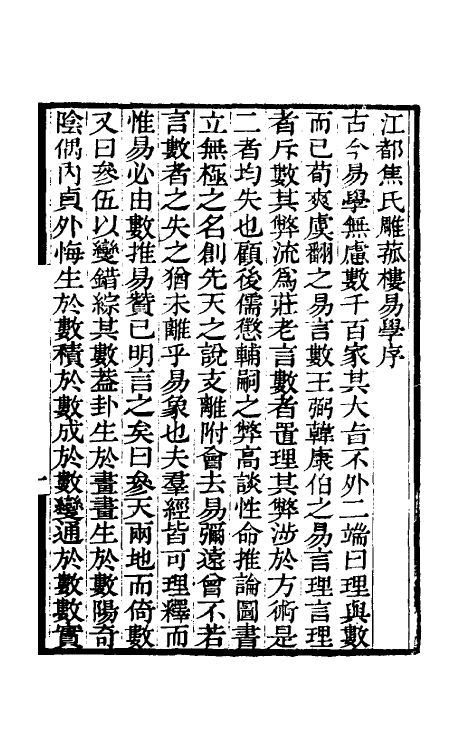 江都焦氏雕菰樓易學序
古今易學無慮數千百家其大旨不外二端曰理與數
而已荀爽虞翻之易言數王弼韓康伯之易言理言理
者斥數其弊流爲莊老言數者置理其弊涉於方術是
二者均失也顧後儒懲輔嗣之弊高談性命推論圖書
立無極之名創先天之說支離附會去易彌遠曾不若
言數者之失之猶未離乎易象也夫羣經皆可理釋而
惟易必由數推易贊已明言之矣曰參天兩地而倚數
又曰參伍以變錯綜其數葢卦生於畫畫生於數陽奇
陰偶內貞外悔生於數積於數成於數變通於數數實
一